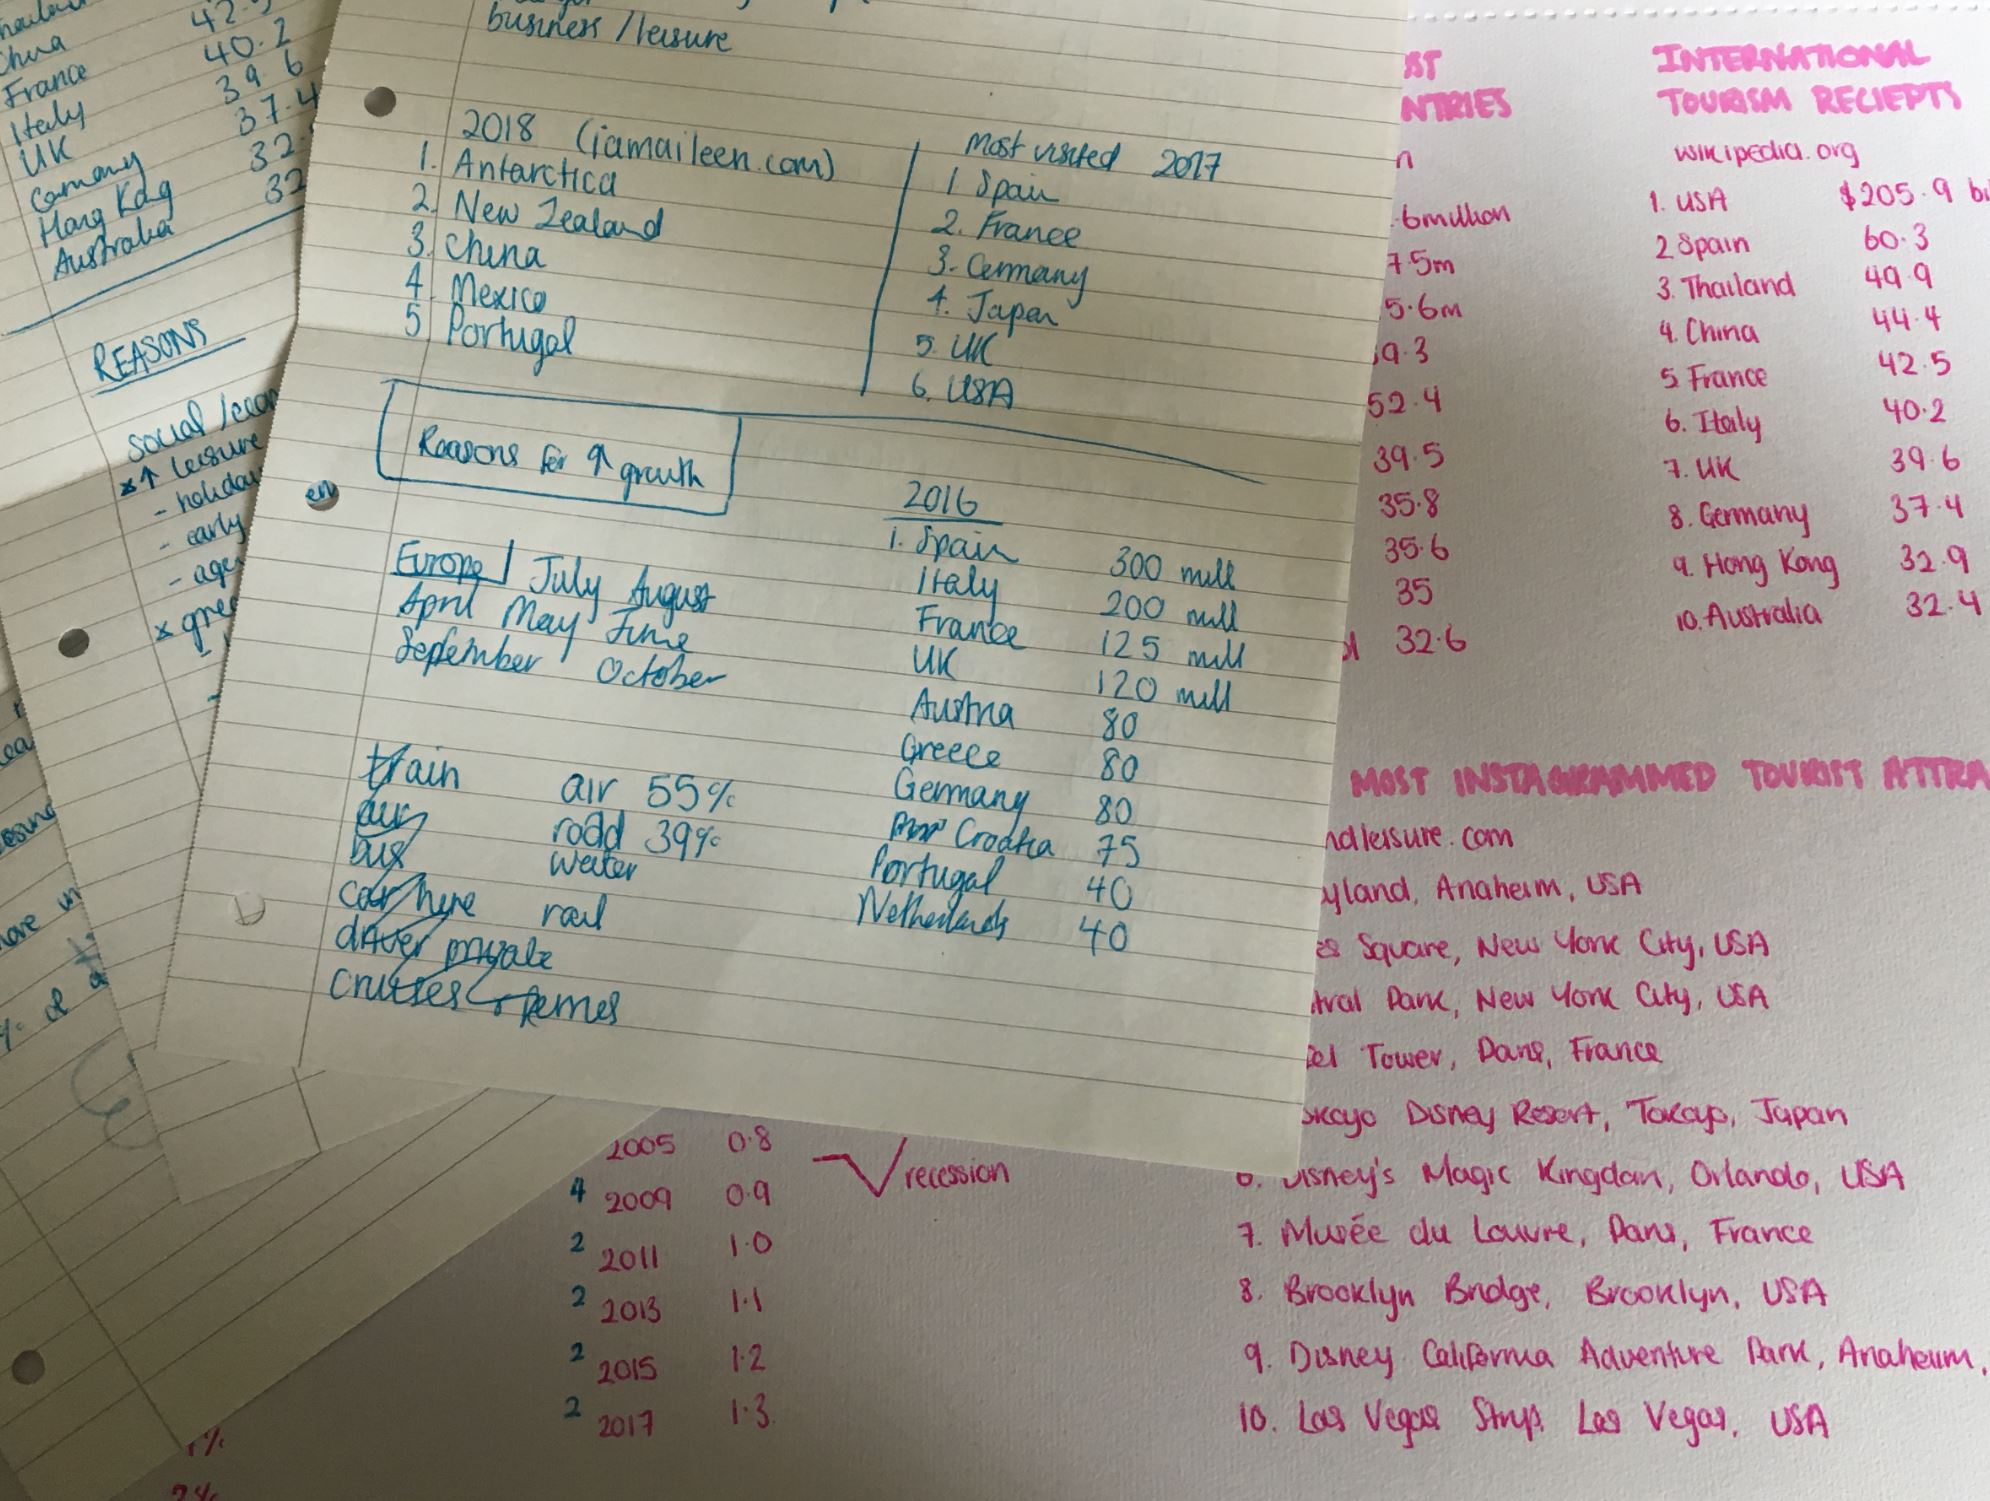 China 40.2
France 39.6
Italy 37.4
UK
Germany
Hong Kong
Australia
REASONS
social /
↑ leisure
- early
business / leisure
2018 (iamaileen.com)
1. Antarctica
2. New Zealand
3. China
4. Mexico
5. Portugal
Most visited 2017
1 Spain
2. France
3. Germany
4. Japan
5. UK
6. USA
Reasons for ↑ growth
Europe / July August
April May June
September October
2016
1. Spain 300 mill
Italy 200 mill
France 125 mill
UK 120 mill
Austria 80
Greece 80
Germany 80
Croatia 75
Portugal 40
Netherlands 40
train
air
bus
car hire
driver private
cruises & ferries
air 55%
road 39%
water
rail
ST
NTRIES
.6million
7.5m
5.6m
9.3
52.4
39.5
35.8
35.6
35
32.6
INTERNATIONAL
TOURISM RECIEPTS
wikipedia.org
1. USA $205.9 bi
2 Spain 60.3
3. Thailand 49.9
4. China 44.4
5 France 42.5
6. Italy 40.2
7. UK 39.6
8. Germany 37.4
9. Hong Kong 32.9
10. Australia 32.4
MOST INSTAGRAMMED TOURIST ATTRA
ndleisure.com
yland, Anaheim, USA
es Square, New York City, USA
tral Park, New York City, USA
el Tower, Paris, France
okayo Disney Resort, Tokayo, Japan
6. Disney's Magic Kingdom, Orlando, USA
7. Musée du Louvre, Paris, France
8. Brooklyn Bridge, Brooklyn, USA
9. Disney California Adventure Park, Anaheim,
10. Las Vegas Strip, Las Vegas, USA
2005 0.8
recession
4 2009 0.9
2 2011 1.0
2 2013 1.1
2 2015 1.2
2 2017 1.3